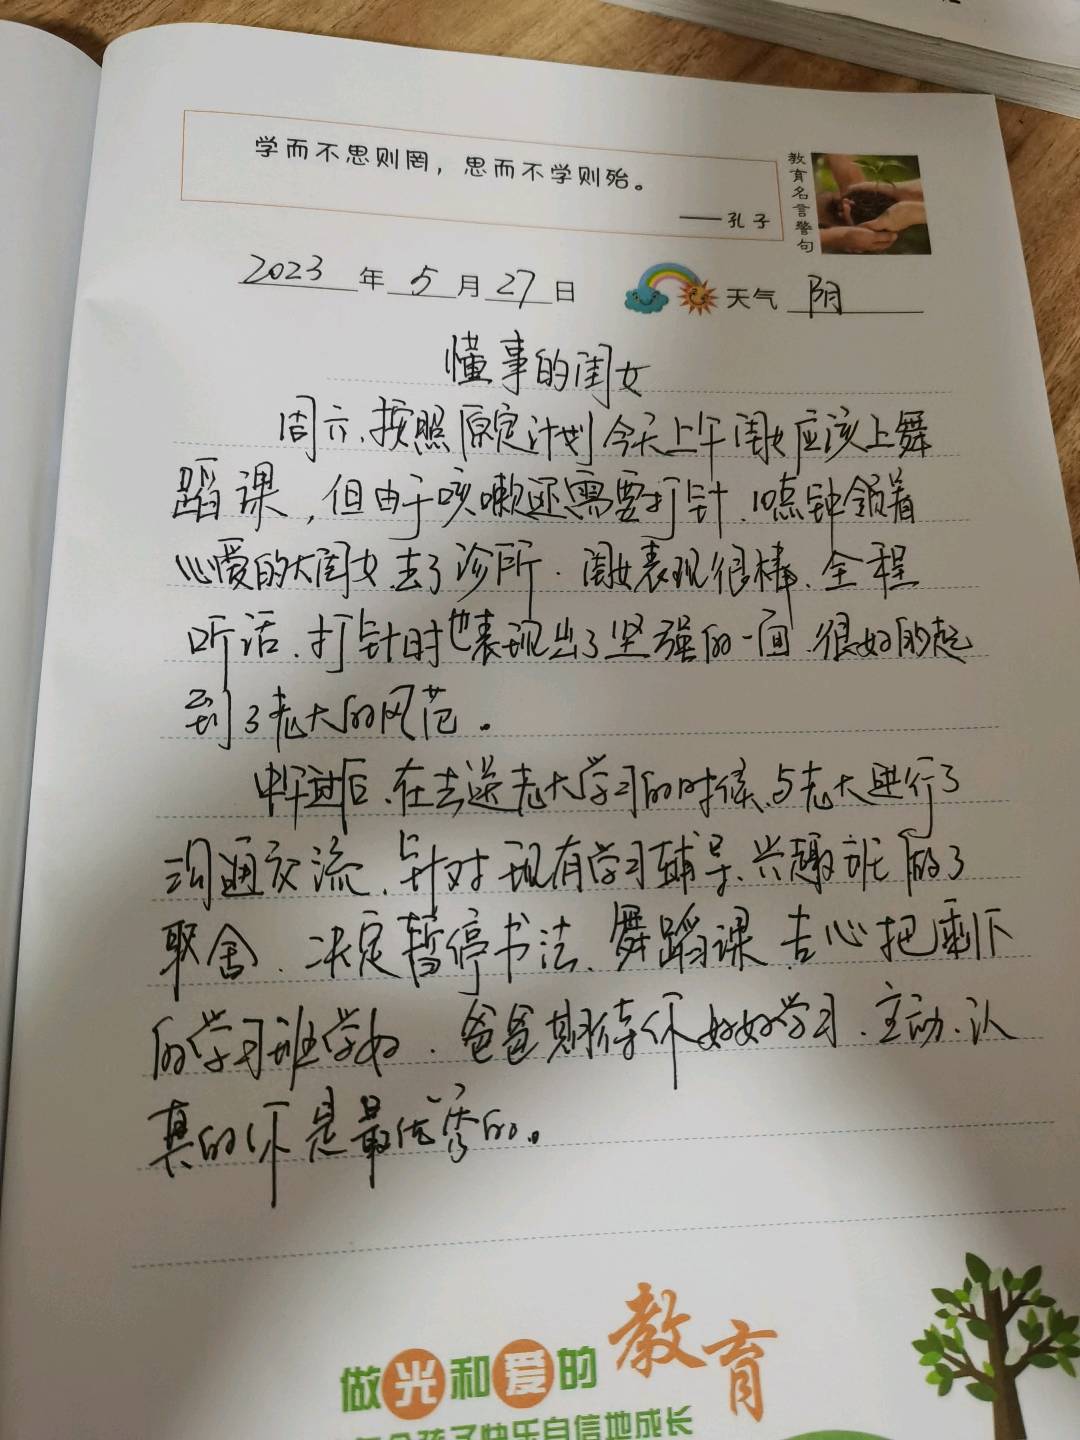 学而不思则罔，思而不学则殆。
——孔子
教育名言警句
2023年5月27日 天气 阴
懂事的闺女
周六、按照原定计划今天上午闺女应该上舞
蹈课，但由于咳嗽还需要打针、10点钟领着
心爱的大闺女去了诊所、闺女表现很棒、全程
听话、打针时也表现出了坚强的一面、很好的起
到了老大的风范。
中午过后、在去送老大学习的时候、与老大进行了
沟通交流、针对现有学习辅导、兴趣班做了
取舍、决定暂停书法、舞蹈课、专心把剩下
的学习班学好、爸爸期待你好好学习、主动、认
真的你是最优秀的。
做光和爱的教育
孩子快乐自信地成长